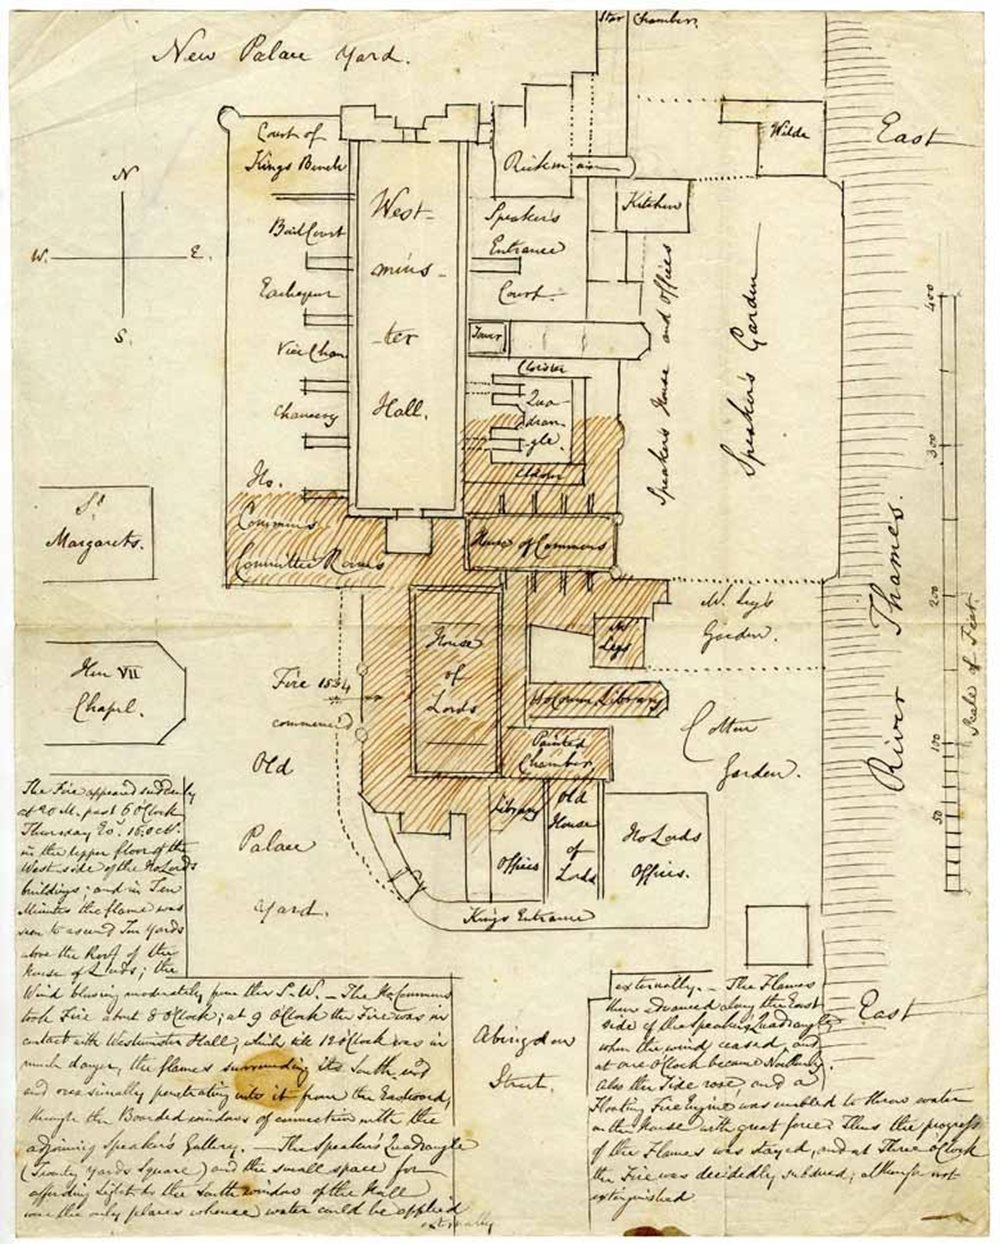 Star Chamber.
New Palace Yard.
East
Court of
Kings Bench
Rickman
Wilde
Kitchen
N
W.
E.
S.
Bail Court
Exchequer
Vice Chan
Chancery
Ho.
Commons
Committee Rooms
West-
mins-
-ter
Hall.
Speaker's
Entrance
Court.
Tower
Cloister
Qua-
dran-
gle.
Cloister
Speaker's House and Offices
Speaker's Garden
House of Commons
St
Margarets.
Hen VII
Chapel.
House
of
Lords
Mr Leys
Garden.
Leys
Ho Comm. Library
Cotton
Garden.
Painted
Chamber
Library
Offices
Old
House
of
Lords
Ho Lords
Offices.
Kings Entrance
Fire 1834
commenced
Old
Palace
Yard.
River Thames.
400
300
200
100
50
Scale of Feet.
East
Abingdon
Street.
The Fire appeared suddenly
at 20 M. past 6 O'Clock
Thursday Eg. 16. Oct.
in the upper floor of the
West side of the Ho Lords
buildings; and in Ten
Minutes the flame was
seen to ascend Ten Yards
above the Roof of the
House of Lords; the
Wind blowing moderately from the S.W. — The Ho Commons
took Fire about 8 O'Clock; at 9 O'Clock the Fire was in
contact with Westminster Hall, which till 12 O'Clock was in
much danger, the flames surrounding its South end
and occasionally penetrating into it from the Eastward,
through the Boarded windows of connection with the
adjoining Speaker's Gallery. — The Speaker's Quadrangle
(Twenty Yards Square) and the small space for
affording Light to the South window of the Hall
were the only places whence water could be applied
externally
externally. — The Flames
then advanced along the East
side of the Speaker's Quadrangle
when the wind ceased, and
at one O'Clock became Northerly.
Also the Tide rose, and a
Floating Fire Engine was enabled to throw water
on the House with great force. Thus the progress
of the Flames was stayed, and at Three O'Clock
the Fire was decidedly subdued, although not
extinguished